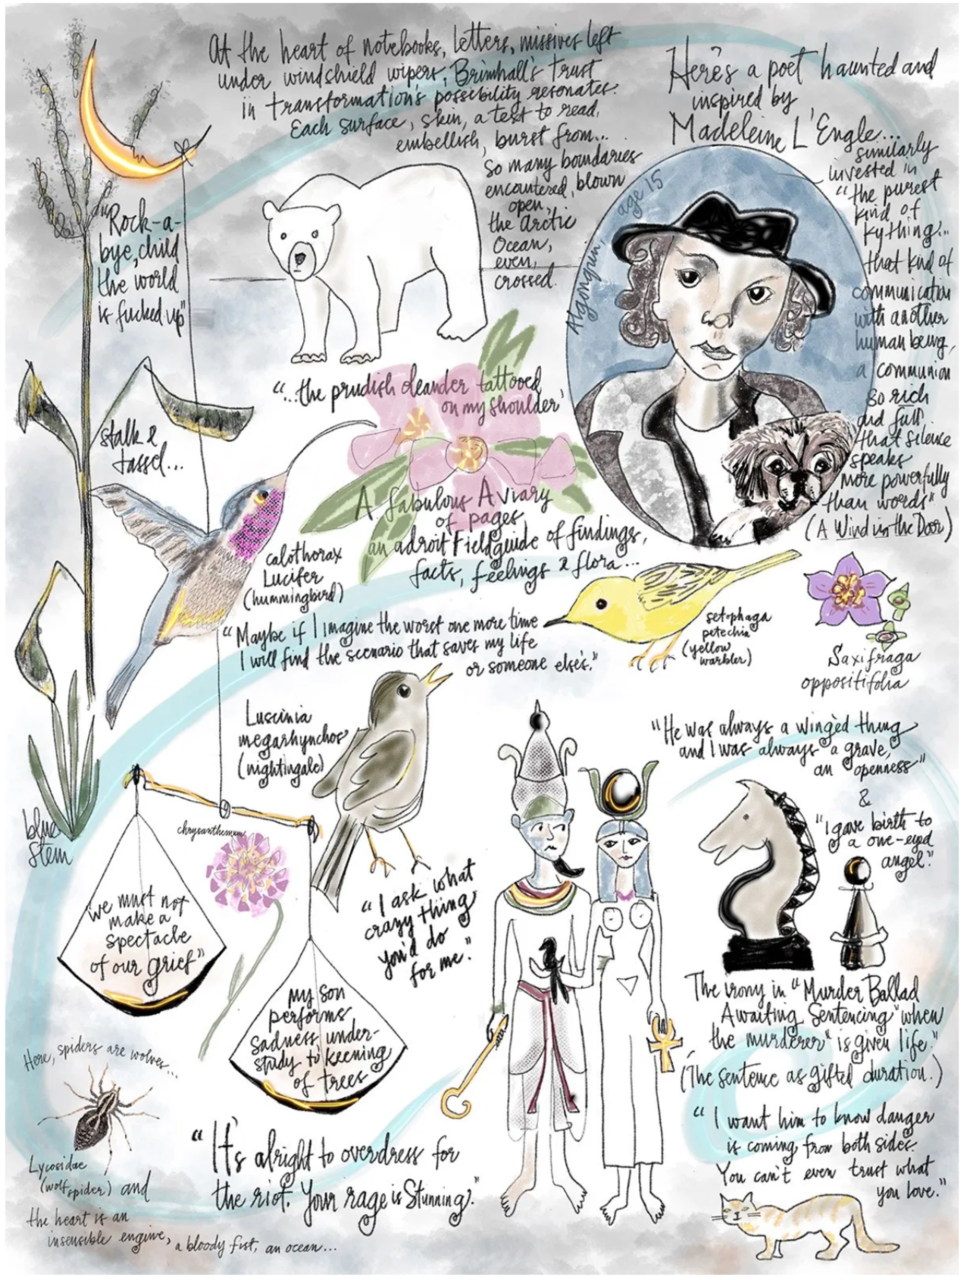 At the heart of notebooks, letters, missives left
under windshield wipers, Brimhall's trust
in transformation's possibility resonates.
Each surface, skin, a test to read,
embellish, burst from...
So many boundaries
encountered, blown
open,
the Arctic
Ocean,
even,
crossed.
Here's a poet haunted and
inspired by
Madeleine L'Engle...
similarly
invested in
"the purest
kind of
kything"...
that kind of
communication
with another
human being,
a communion
so rich
and full
that silence
speaks
more powerfully
than words"
(A Wind in the Door)
age 15
Algonquin,
"Rock-a-
bye, child
the world
is fucked up"
"...the prudish oleander tattooed
on my shoulder"
stalk &
tassel...
A fabulous Aviary
of pages
an adroit Fieldguide of findings,
facts, feelings & flora...
calothorax
Lucifer
(hummingbird)
"Maybe if I imagine the worst one more time
I will find the scenario that saves my life
or someone else's."
setophaga
petechia
(yellow
warbler)
Saxifraga
oppositifolia
Luscinia
megarhynchos
(nightingale)
"He was always a wingèd thing
and I was always a grave,
an openness"
&
"I gave birth to
a one-eyed
angel."
blue
stem
chrysanthemum
"we must not
make a
spectacle
of our grief"
"I ask what
crazy thing
you'd do
for me."
my son
performs
sadness, under-
study to keening
of trees
The irony in "Murder Ballad
Awaiting Sentencing" when
the murderer "is given life."
(The sentence as gifted duration.)
Here, spiders are wolves...
Lycosidae
(wolf spider) and
the heart is an
insensible engine, a bloody fist, an ocean...
"It's alright to overdress for
the riot. Your rage is stunning."
"I want him to know danger
is coming from both sides.
You can't even trust what
you love."